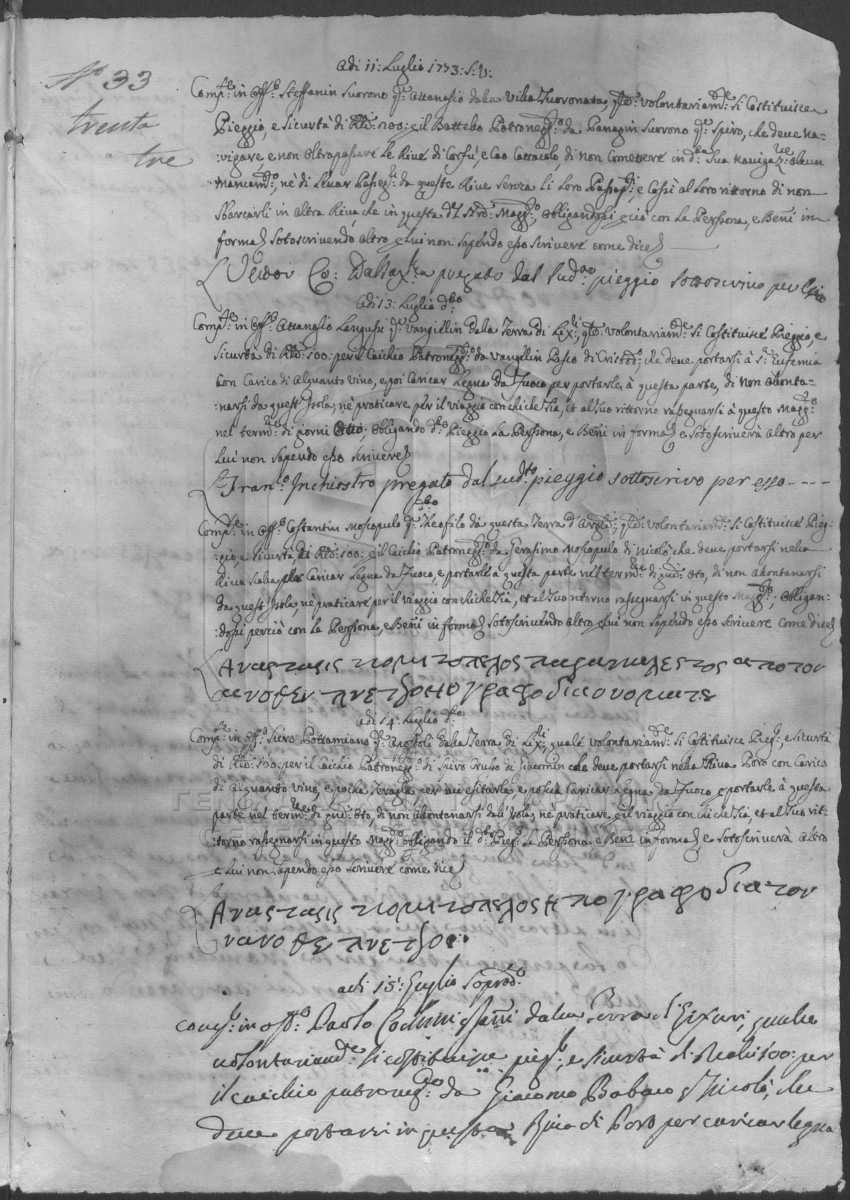 N.º 33
trenta
tre
Adi 11: Luglio 1773: S: V:
Comp.e in Off.o Steffanin Suorono q.m Attanasio dalla Villa Zuoronata, q.le volontariam.te si Costituisce
Pieggio, e sicurtà di R.li: 200: p il Battello Patroneg.to da Panagin Suorono q.m Spiro, che deve na-
:vigare e non oltrapassare le Rive di Corfù, e Cao Cattacolo di non Cometere in d.a sua navigaz.ne alcun
mancam.to, nè di levar Paseg.i da queste Rive senza li loro Pasap.ti, e Cossì al loro rittorno di non
sbarcarli in altra Riva che in questa del Mag.to, obligandosi p ciò con la Persona, e Beni in
forma sotoscrivendo altro p Lui non sapendo esso scrivere come dice
pregato dal sud.to pieggio sottoscrivo per esso
Adi 13: Luglio d.to
Comp.e in Off.o Attanasio q.m Vangillin dalla Terra di Lix.i, q.le volontariam.te si Costituisce Pieggio, e
sicurtà di R.li: 100: per il Caichio Patroneg.to da Vangilin Pasco di Crist.o, che deve portarsi à S.ta Eufemia
con Carico di alquanto vino, e poi Caricar Legna da Fuoco per portarle à questa parte, di non alonta-
:narsi da quest'Isola, nè praticare per il viaggio con chichesia, et al suo rittorno rasegnarsi à questo Mag.to
nel term.e di giorni Otto; obligando d.to Pieggio la Persona, e Beni in forma e sotoscriverà altro per
Lui non sapendo esso scrivere
Fran.o Inchiostro pregato dal sud.to pieggio sottoscrivo per esso - - - -
d.to
Comp.e in Off.o Costantin Moscopulo q.m Theofilo da questa Terra d'Arg.li, q.le volontariam.te si Costituisce Pieg-
gio, e sicurtà di R.li: 100: p il Caichio Patroneg.to da Gerasimo Moscopulo di Nicolò che deve portarsi nella
Riva Scala p Caricar Legna da Fuoco, e portarle à questa parte nel term.e di gni: Oto, di non alontanarsi
da quest'Isola, nè praticare per il viaggio con chichesia, et al suo ritorno rasegnarsi in questo Mag.to, obligan-
:dosi perciò con la Persona, e Beni in forma sotoscrivendo altro p Lui non sapendo esso scrivere come dice
Αναςτασις παρακαλεςτος απο τον
ανοθεν πγετζο ηπογραφο δια ονοματι
Adi 14: Luglio d.to
Comp.e in Off.o Spiro Pottamiano q.m Apostoli dalla Terra di Lix.i, quale volontariam.te si Costituisce Pieg.o, e sicurtà
di R.li: 100: per il Caichio Patroneg.to di Spiro Cruso di Giacomin che deve portarsi nella Riva Poro con Carico
di alquanto vino, e poca per ivi esitarle, e poscia Caricar Legna da Fuoco e portarle à questa
parte nel term.e di gni: Oto, di non alontanarsi dall'Isola, nè praticare p il viaggio con chichesia, et al suo rit-
:torno rasegnarsi in questo Mag.to obligando il d.to Pieg.o la Persona e Beni in forma e sotoscriverà altro
p Lui non sapendo esso scrivere come dice
Αναςτασις ηπογραφο δια τον
ανοθεν πγετζο:
adi 15: Luglio Soprad.to
Comp.e in off.o Paolo dalla Terra di Lixuri, quale
volontariam.te si costituisce pieg.o, e sicurtà di Reali 100: per
il caichio patroneg.to da Giacomo Nicolò, che
deve portarsi in questa Riva di Poro per caricar legna